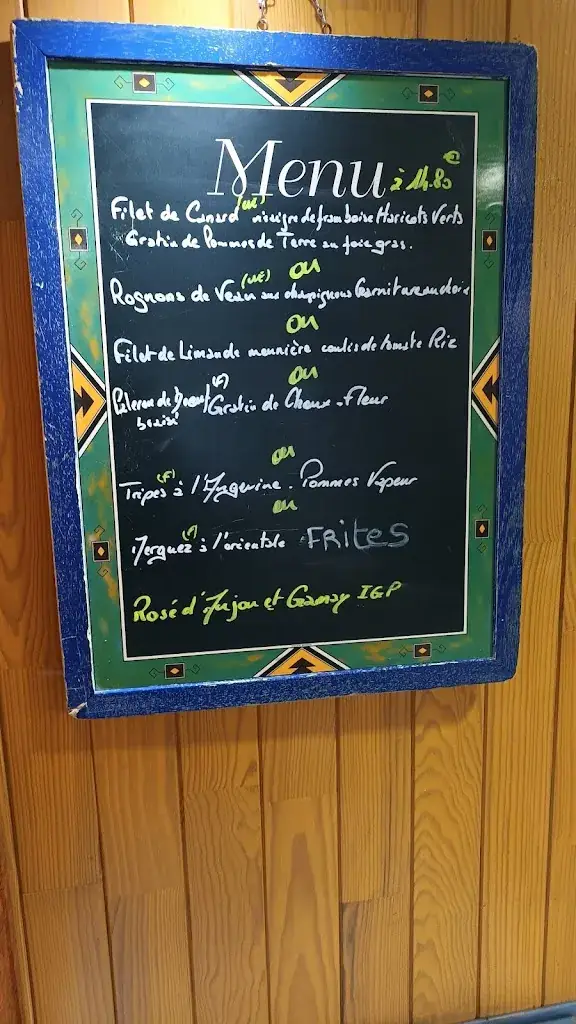 Menu à 14.80 €
Filet de Canard (UE) vinaigre de framboise Haricots Verts
Gratin de Pommes de Terre au foie gras.
ou
Rognons de Veau (UE) aux champignons Garniture au choix
ou
Filet de Limande meunière coulis de tomate Riz
ou
Paleron de Boeuf (F) Gratin de Choux-Fleur
braisé
ou
Tripes (F) à l'Angevine. Pommes Vapeur
ou
Merguez (F) à l'orientale FRITES
Rosé d'Anjou et Gamay IGP